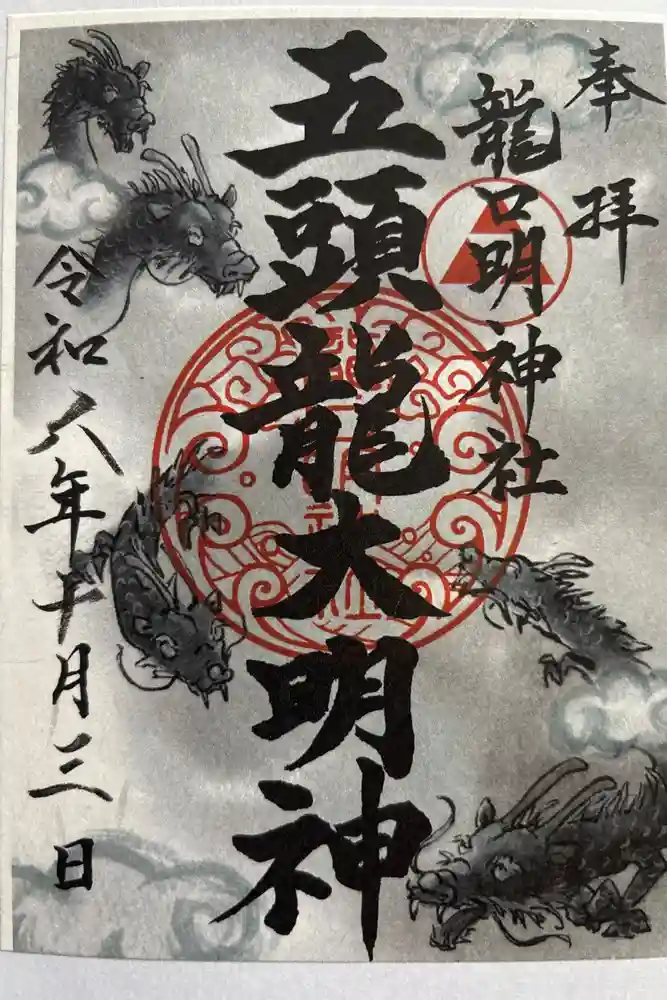 奉拝
龍口明神社
五頭龍大明神
令和八年十月三日